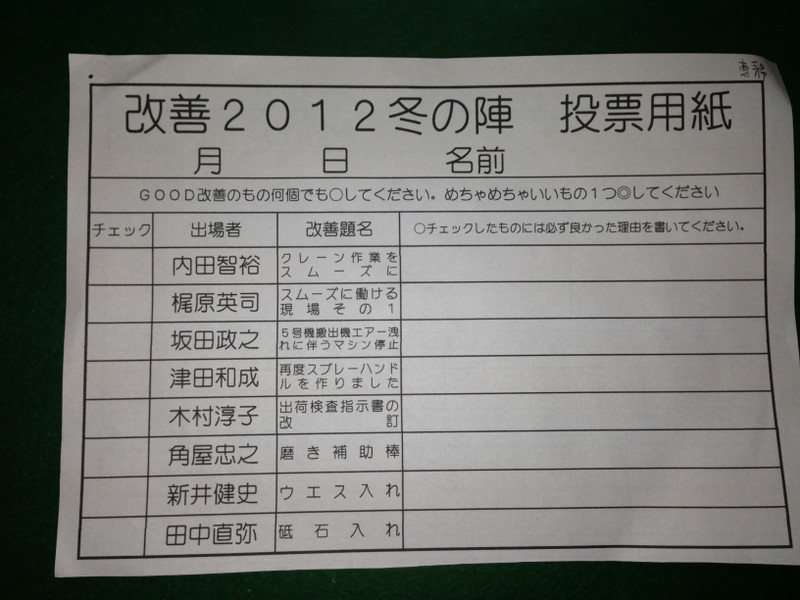 専務
改善２０１２冬の陣　投票用紙
月　日　名前
ＧＯＯＤ改善のもの何個でも○してください。めちゃめちゃいいもの１つ◎してください
チェック　出場者　改善題名　○チェックしたものには必ず良かった理由を書いてください。
内田智裕　クレーン作業を
スムーズに
梶原英司　スムーズに働ける
現場その１
坂田政之　５号機搬出機エアー洩
れに伴うマシン停止
津田和成　再度スプレーハンド
ルを作りました
木村淳子　出荷検査指示書の
改訂
角屋忠之　磨き補助棒
新井健史　ウエス入れ
田中直弥　砥石入れ